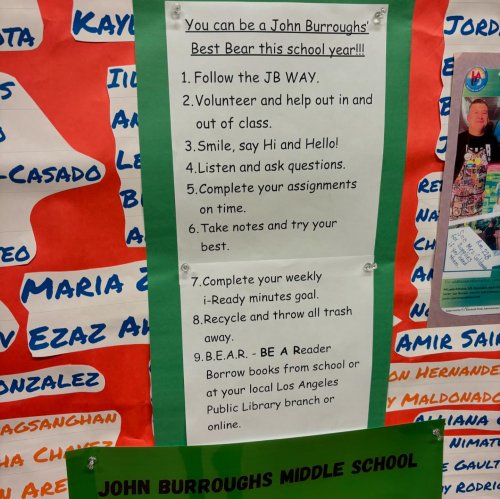 You can be a John Burroughs'
Best Bear this school year!!!
1. Follow the JB WAY.
2. Volunteer and help out in and
out of class.
3. Smile, say Hi and Hello!
4. Listen and ask questions.
5. Complete your assignments
on time.
6. Take notes and try your
best.
7. Complete your weekly
i-Ready minutes goal.
8. Recycle and throw all trash
away.
9. B.E.A.R. - BE A Reader
Borrow books from school or
at your local Los Angeles
Public Library branch or
online.
JOHN BURROUGHS MIDDLE SCHOOL
-CASADO
MARIA
EZAZ
AMIR
HERNANDE
MALDONADO
ALLIANA